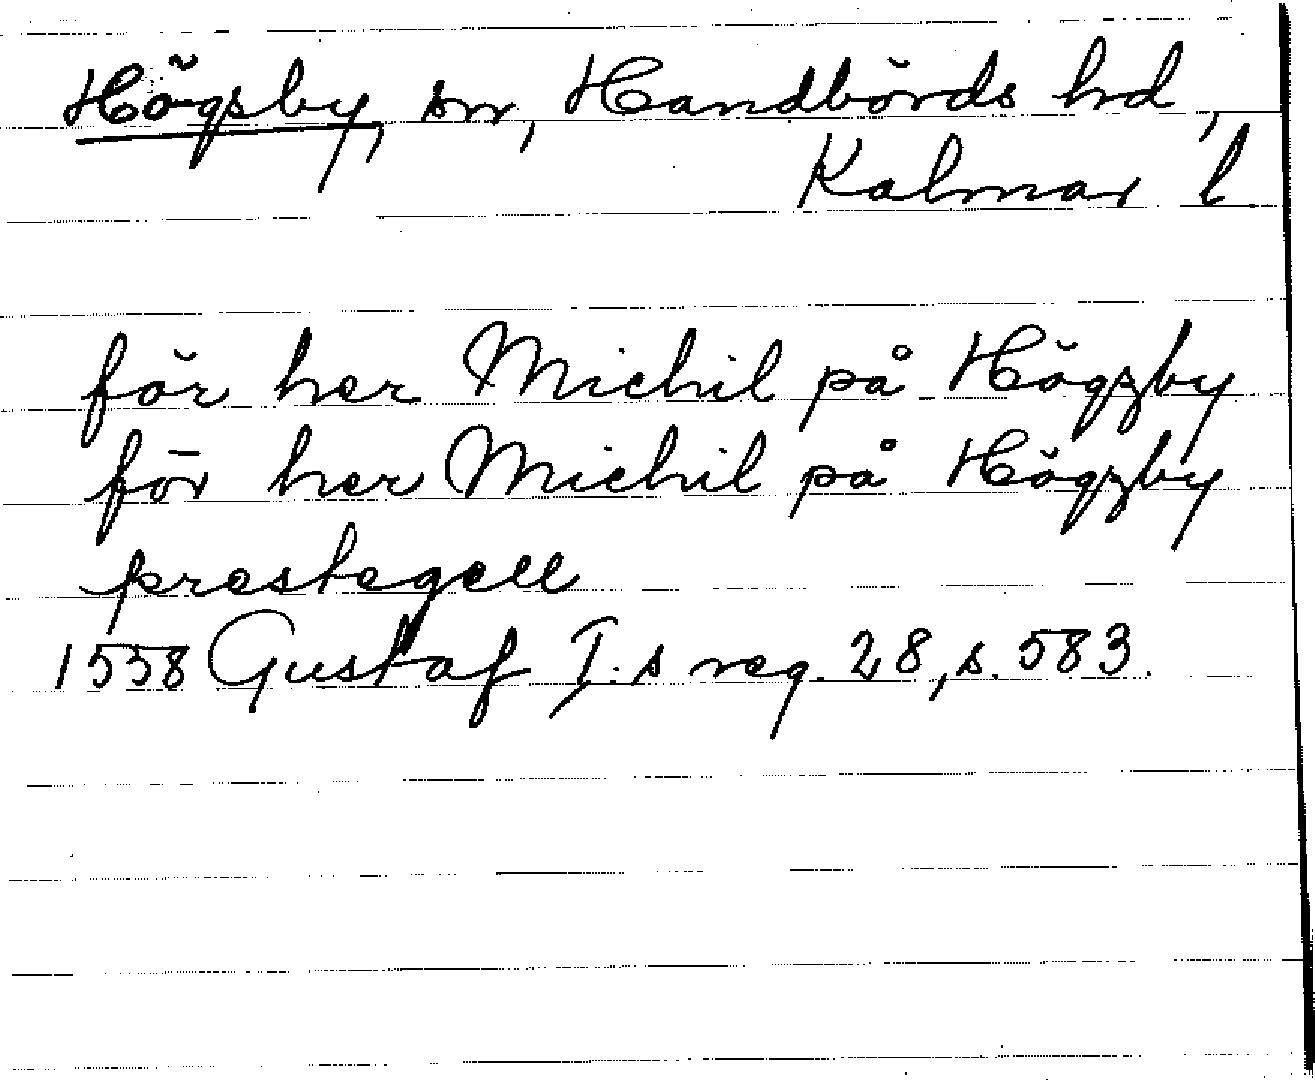 Högsby, sn, Handbörds hd,
Kalmar l
för her Michil på Högzby
för her Michil på Högzby
prestegell
1558 Gustaf I:s reg. 28, s. 583.